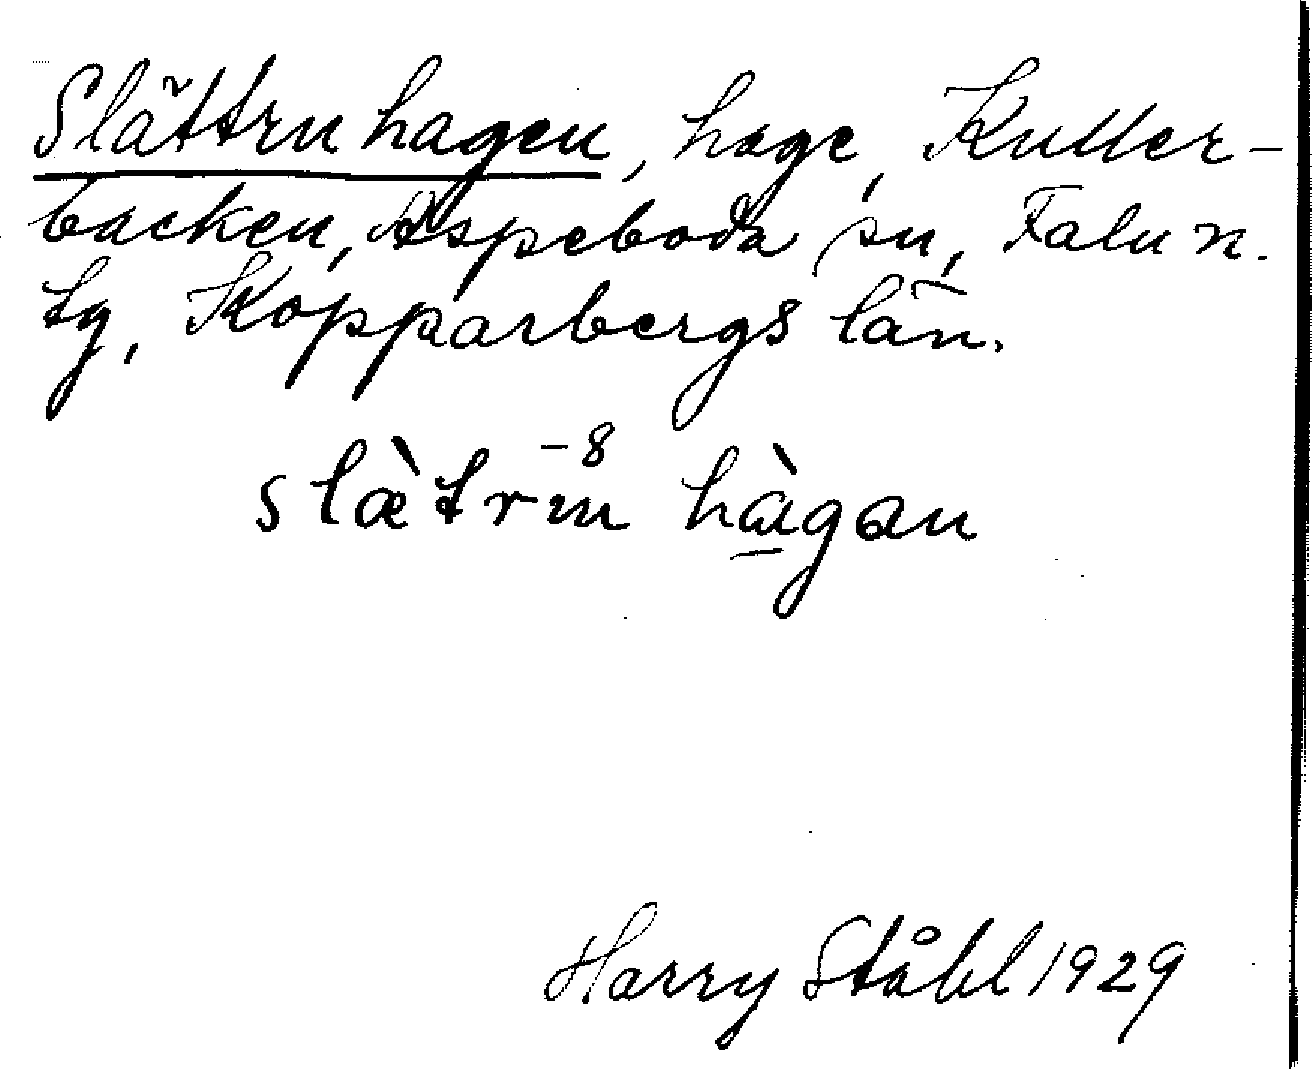 Slättrnhagen, hage, Kuller-
backen, Aspeboda sn, Falu n.
tg, Kopparbergs län.
slæ̀trm̄⁸ hàgan
Harry Ståhl 1929